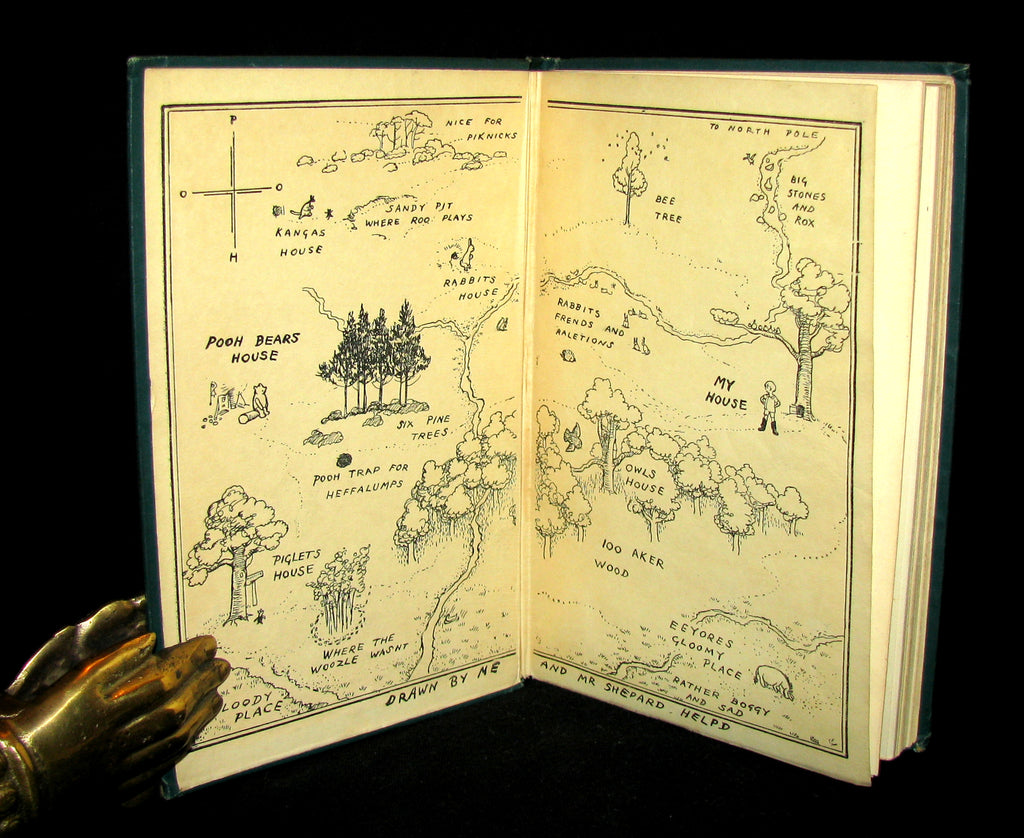 P
O
O
H
NICE FOR
PIKNICKS
KANGAS
HOUSE
SANDY PIT
WHERE ROO PLAYS
RABBITS
HOUSE
POOH BEARS
HOUSE
SIX PINE
TREES.
POOH TRAP FOR
HEFFALUMPS
PIGLETS
HOUSE
WHERE THE
WOOZLE WASNT
LOODY
PLACE
DRAWN BY ME
TO NORTH POLE
BEE
TREE
BIG
STONES
AND
ROX
RABBITS
FRENDS AND
RALETIONS
MY
HOUSE
OWLS
HOUSE
100 AKER
WOOD
EEYORES
GLOOMY
PLACE
RATHER BOGGY
AND SAD
AND MR SHEPARD HELPD